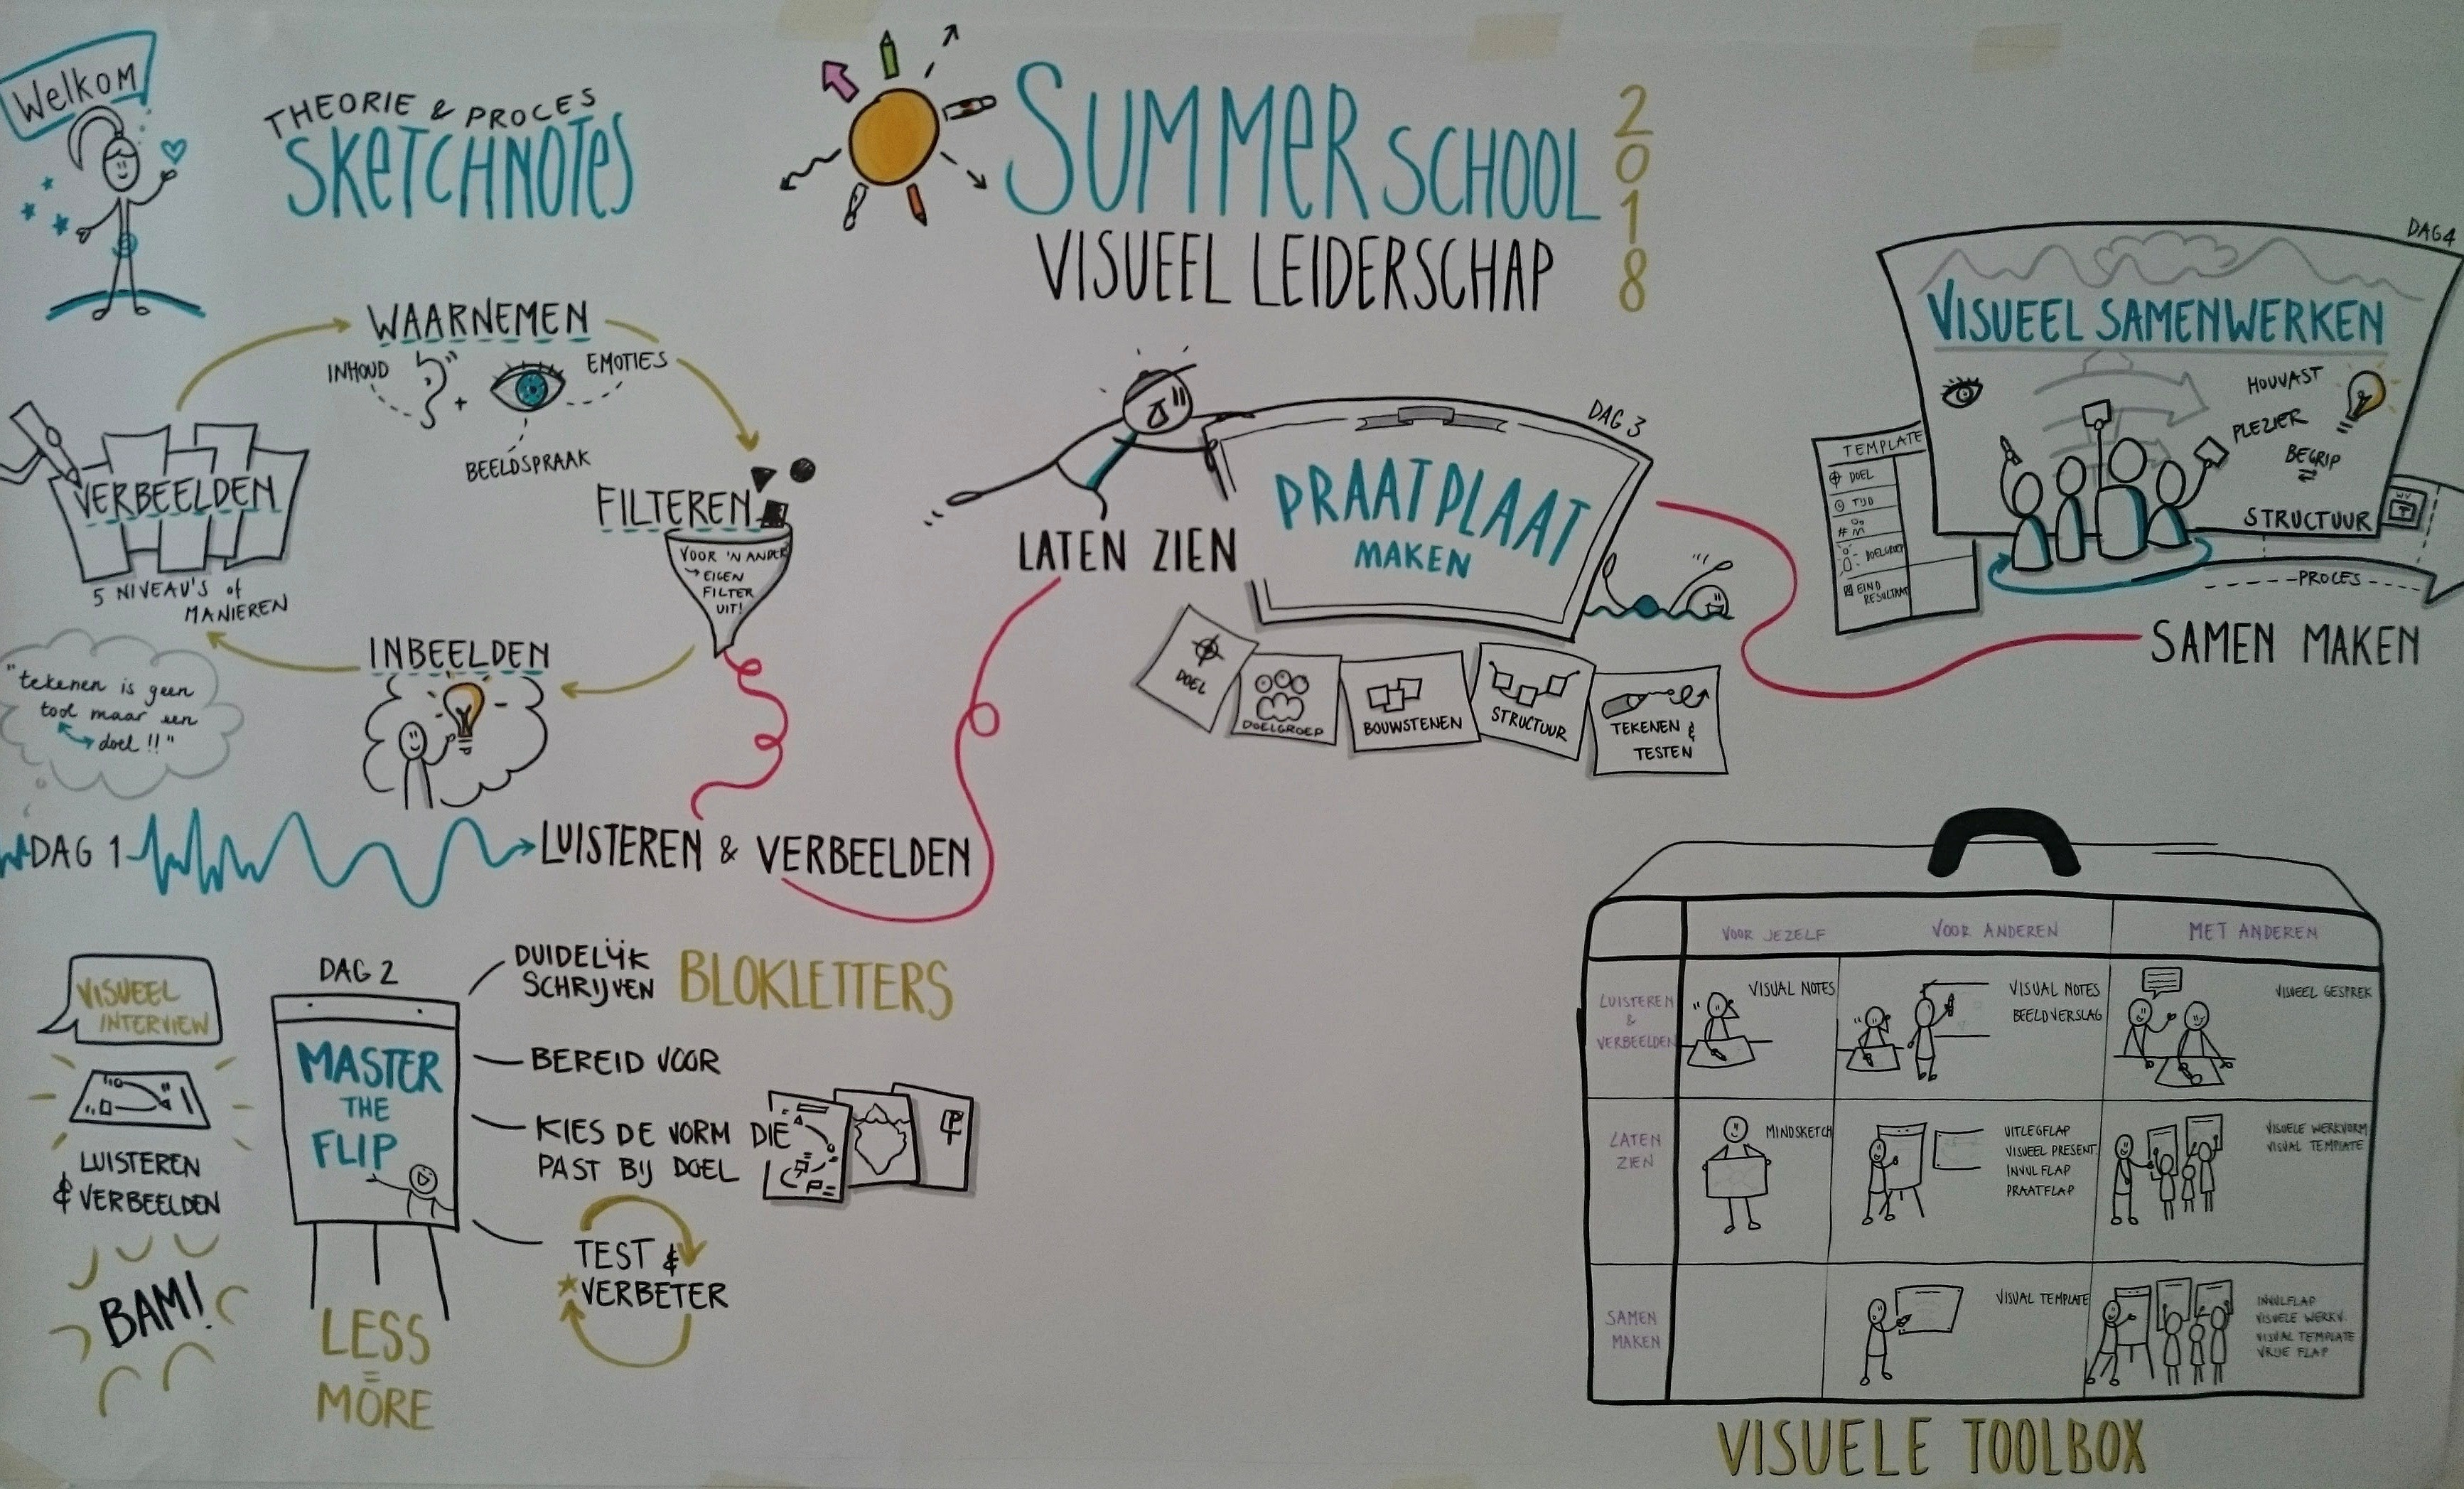 Welkom
THEORIE & PROCES
SKETCHNOTES
SUMMER SCHOOL
2018
VISUEEL LEIDERSCHAP
WAARNEMEN
INHOUD
+
EMOTIES
BEELDSPRAAK
FILTEREN
VOOR 'N ANDER
→ EIGEN
FILTER
UIT!
INBEELDEN
VERBEELDEN
5 NIVEAU'S of
MANIEREN
"tekenen is geen
tool maar een
doel !!"
DAG 1
LUISTEREN & VERBEELDEN
VISUEEL
INTERVIEW
LUISTEREN
& VERBEELDEN
BAM!
DAG 2
MASTER
THE
FLIP
LESS
=
MORE
DUIDELIJK
SCHRIJVEN
BLOKLETTERS
BEREID VOOR
KIES DE VORM DIE
PAST BIJ DOEL
TEST &
VERBETER
LATEN ZIEN
DAG 3
PRAATPLAAT
MAKEN
DOEL
DOELGROEP
BOUWSTENEN
STRUCTUUR
TEKENEN &
TESTEN
DAG 4
VISUEEL SAMENWERKEN
HOUVAST
PLEZIER
BEGRIP
STRUCTUUR
TEMPLATE
DOEL
TIJD
#
DOELGROEP
EIND
RESULTAAT
PROCES
SAMEN MAKEN
VOOR JEZELF
VOOR ANDEREN
MET ANDEREN
LUISTEREN
&
VERBEELDEN
VISUAL NOTES
VISUAL NOTES
BEELDVERSLAG
VISUEEL GESPREK
LATEN
ZIEN
MINDSKETCH
UITLEGFLAP
VISUEEL PRESENT.
INVULFLAP
PRAATFLAP
VISUELE WERKVORM
VISUAL TEMPLATE
SAMEN
MAKEN
VISUAL TEMPLATE
INVULFLAP
VISUELE WERKV.
VISUAL TEMPLATE
VRIJE FLAP
VISUELE TOOLBOX